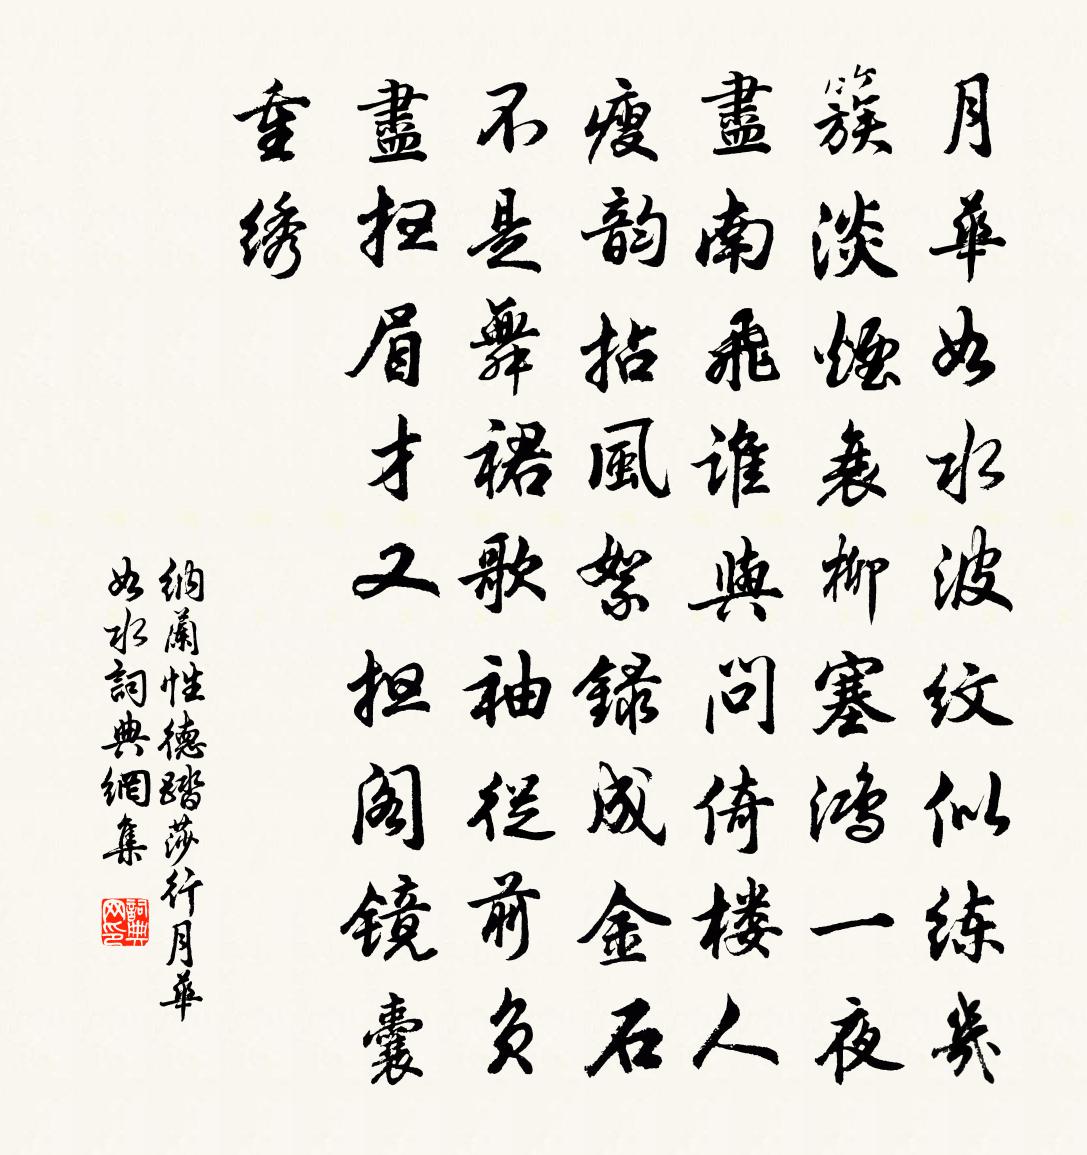 月華如水波紋似练幾
簇淡煙衰柳塞鴻一夜
盡南飛誰與問倚楼人
瘦韵拈風絮録成金石
不是舞裙歌袖從前負
盡掃眉才又担阁镜囊
重绣
納蘭性德踏莎行月華
如水詞典網集
詞典网印